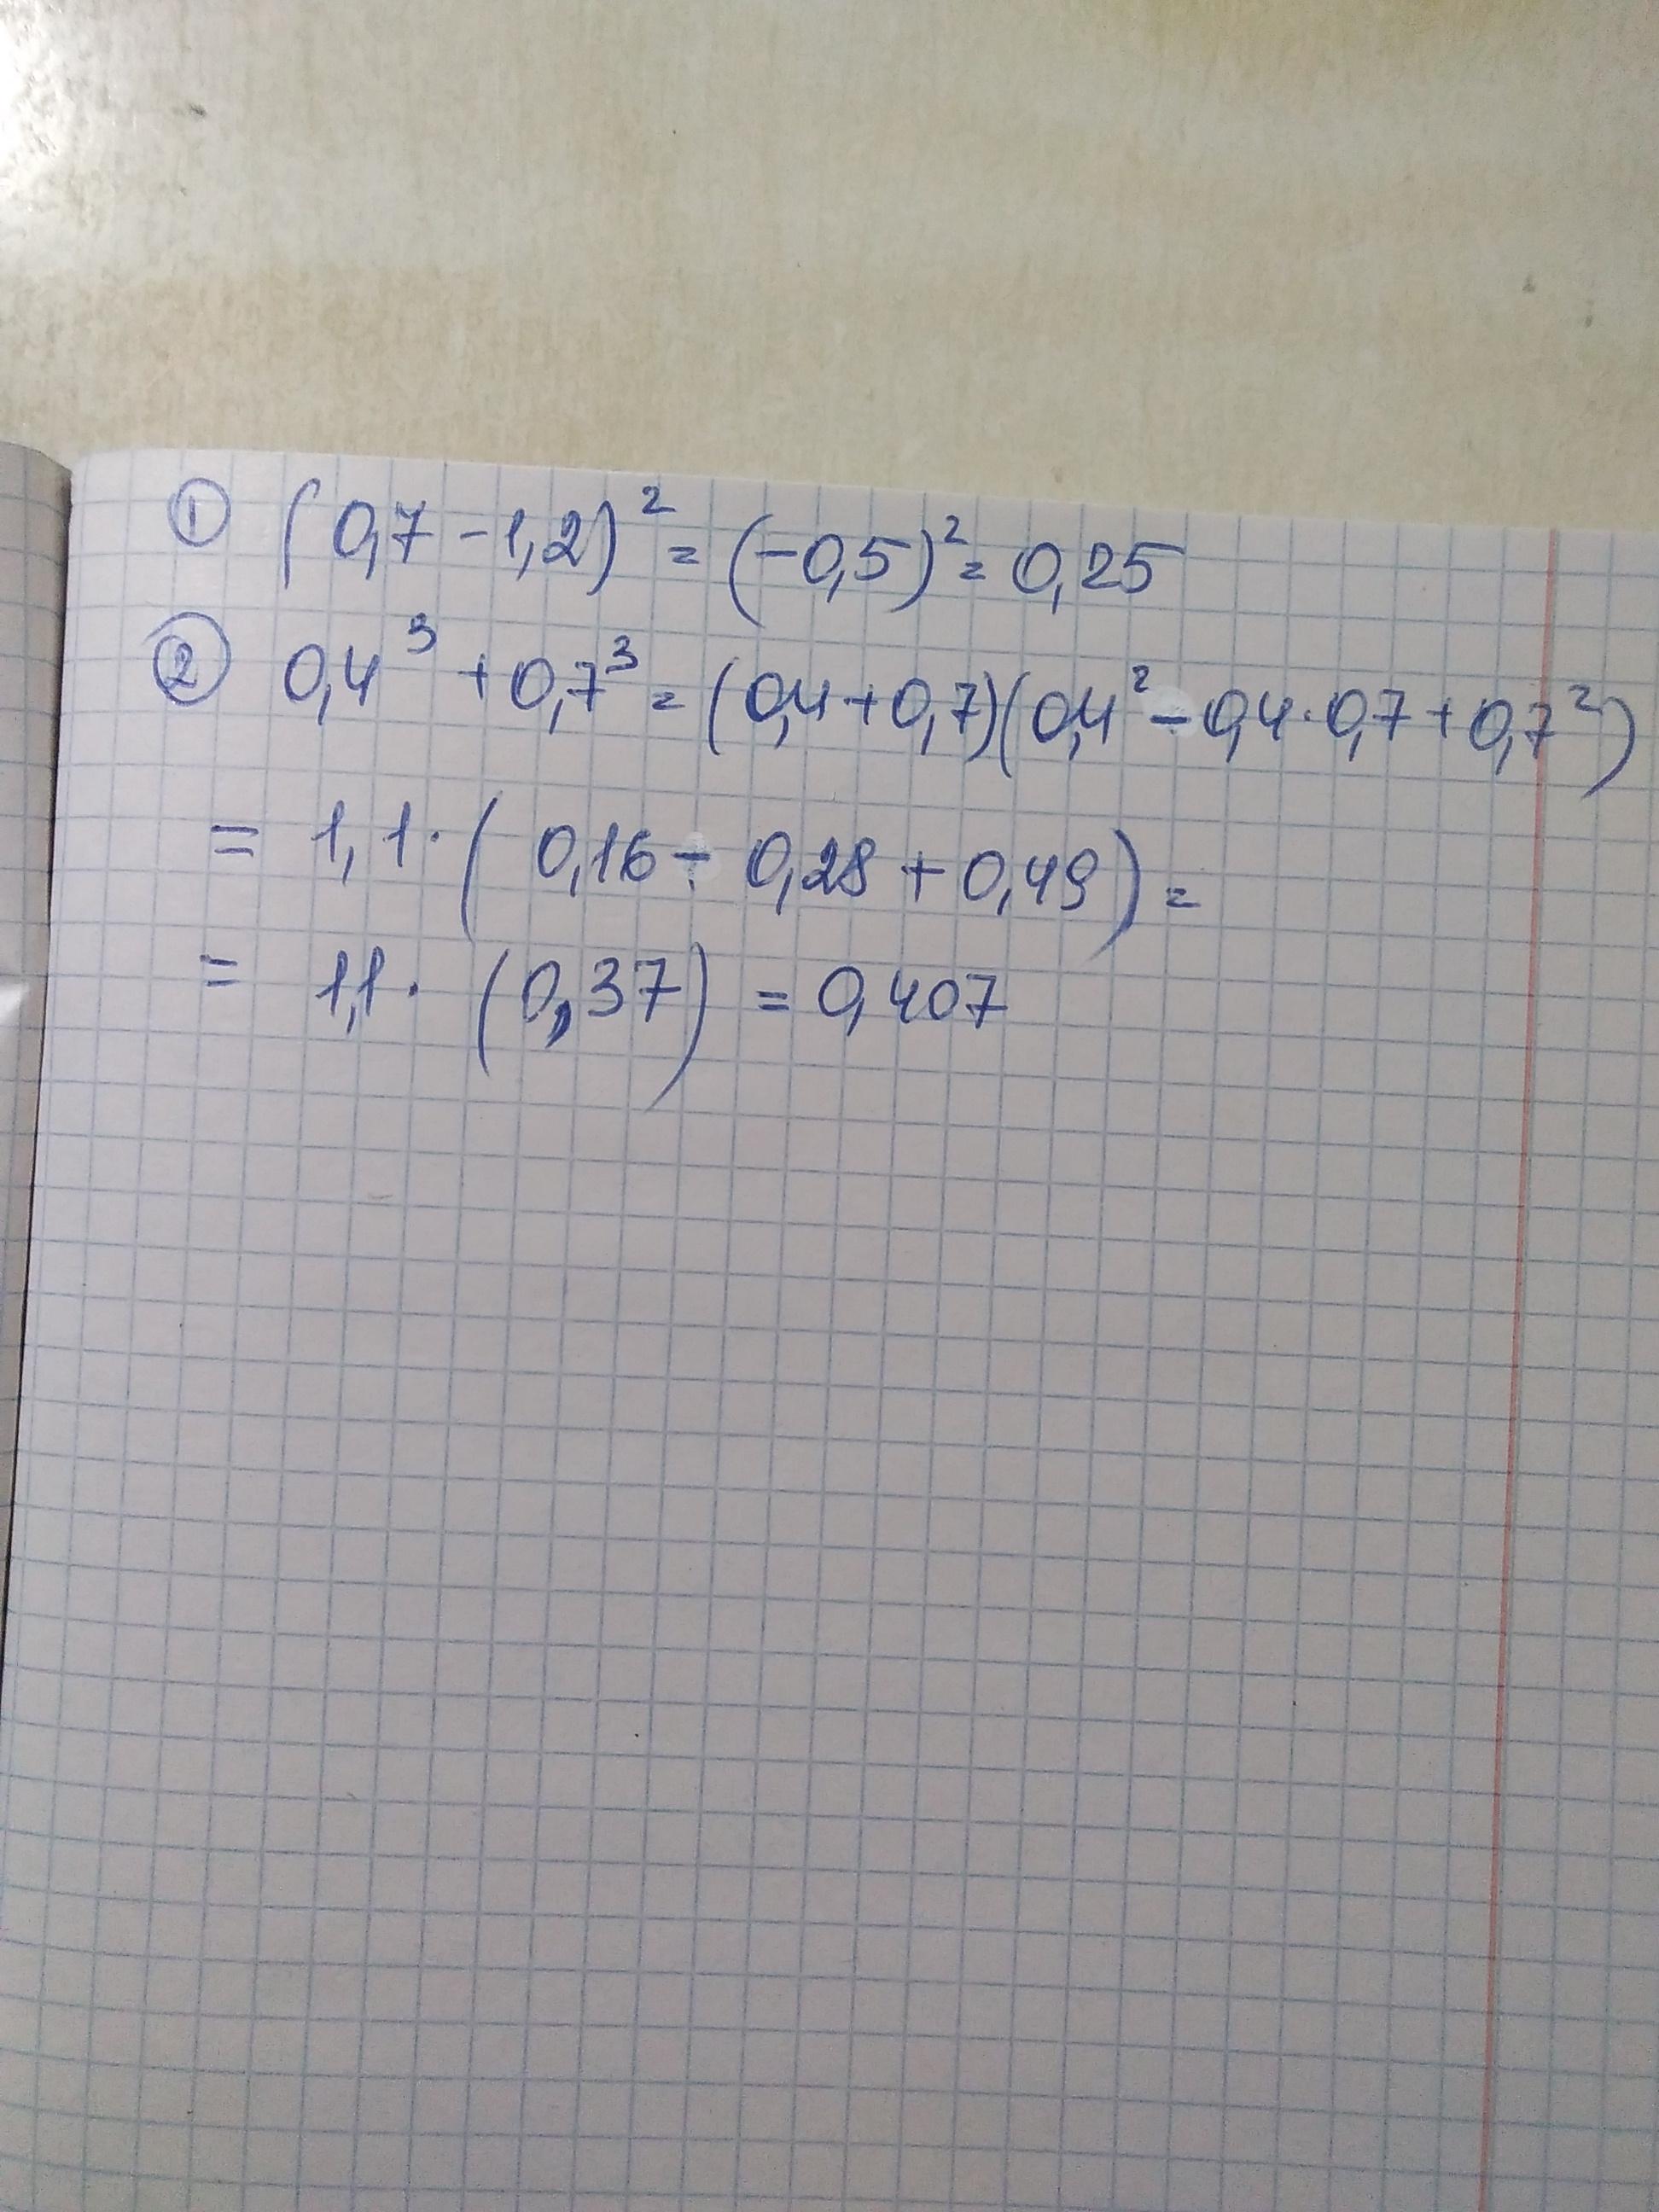 ① (0,7 - 1,2)² = (-0,5)² = 0,25
② 0,4³ + 0,7³ = (0,4 + 0,7)(0,4² - 0,4 · 0,7 + 0,7²)
= 1,1 · (0,16 - 0,28 + 0,49) =
= 1,1 · (0,37) = 0,407